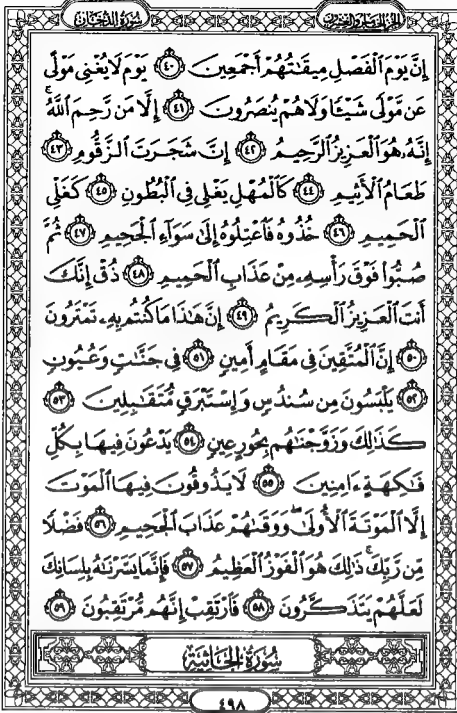 الجزء الخامس والعشرون سورة الدخان
إِنَّ يَوْمَ ٱلْفَصْلِ مِيقَٰتُهُمْ أَجْمَعِينَ ٤٠ يَوْمَ لَا يُغْنِى مَوْلًى
عَن مَّوْلًى شَيْـًٔا وَلَا هُمْ يُنصَرُونَ ٤١ إِلَّا مَن رَّحِمَ ٱللَّهُۚ
إِنَّهُۥ هُوَ ٱلْعَزِيزُ ٱلرَّحِيمُ ٤٢ إِنَّ شَجَرَتَ ٱلزَّقُّومِ ٤٣
طَعَامُ ٱلْأَثِيمِ ٤٤ كَٱلْمُهْلِ يَغْلِى فِى ٱلْبُطُونِ ٤٥ كَغَلْىِ
ٱلْحَمِيمِ ٤٦ خُذُوهُ فَٱعْتِلُوهُ إِلَىٰ سَوَآءِ ٱلْجَحِيمِ ٤٧ ثُمَّ
صُبُّوا۟ فَوْقَ رَأْسِهِۦ مِنْ عَذَابِ ٱلْحَمِيمِ ٤٨ ذُقْ إِنَّكَ
أَنتَ ٱلْعَزِيزُ ٱلْكَرِيمُ ٤٩ إِنَّ هَٰذَا مَا كُنتُم بِهِۦ تَمْتَرُونَ
٥٠ إِنَّ ٱلْمُتَّقِينَ فِى مَقَامٍ أَمِينٍ ٥١ فِى جَنَّٰتٍ وَعُيُونٍ
٥٢ يَلْبَسُونَ مِن سُندُسٍ وَإِسْتَبْرَقٍ مُّتَقَٰبِلِينَ ٥٣
كَذَٰلِكَ وَزَوَّجْنَٰهُم بِحُورٍ عِينٍ ٥٤ يَدْعُونَ فِيهَا بِكُلِّ
فَٰكِهَةٍ ءَامِنِينَ ٥٥ لَا يَذُوقُونَ فِيهَا ٱلْمَوْتَ
إِلَّا ٱلْمَوْتَةَ ٱلْأُولَىٰۖ وَوَقَىٰهُمْ عَذَابَ ٱلْجَحِيمِ ٥٦ فَضْلًا
مِّن رَّبِّكَۚ ذَٰلِكَ هُوَ ٱلْفَوْزُ ٱلْعَظِيمُ ٥٧ فَإِنَّمَا يَسَّرْنَٰهُ بِلِسَانِكَ
لَعَلَّهُمْ يَتَذَكَّرُونَ ٥٨ فَٱرْتَقِبْ إِنَّهُم مُّرْتَقِبُونَ ٥٩
سُورَةُ الجَاثِيَةِ
٤٩٨